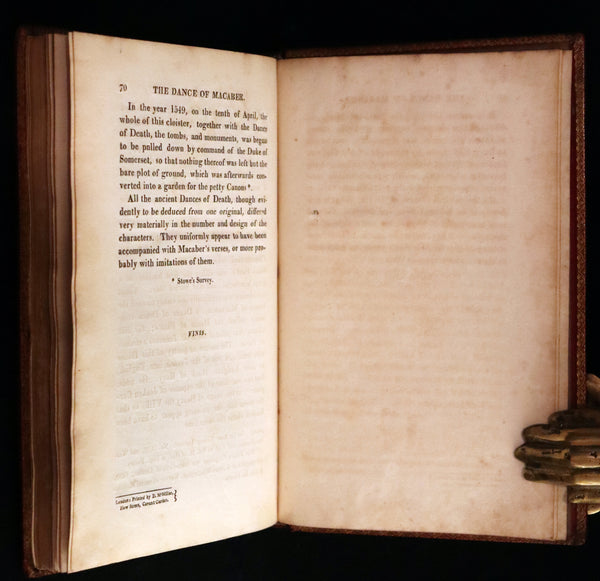 70 THE DANCE OF MACABER.
In the year 1549, on the tenth of April, the
whole of this cloister, together with the Dance
of Death, the tombs, and monuments, was begun
to be pulled down by command of the Duke of
Somerset, so that nothing thereof was left but the
bare plot of ground, which was afterwards con-
verted into a garden for the petty Canons *.
All the ancient Dances of Death, though evi-
dently to be deduced from one original, differed
very materially in the number and design of the
characters. They uniformly appear to have been
accompanied with Macaber's verses, or more pro-
bably with imitations of them.
* Stowe's Survey.
FINIS.
London: Printed by D. S. Millar,
Bow Street, Covent Garden.